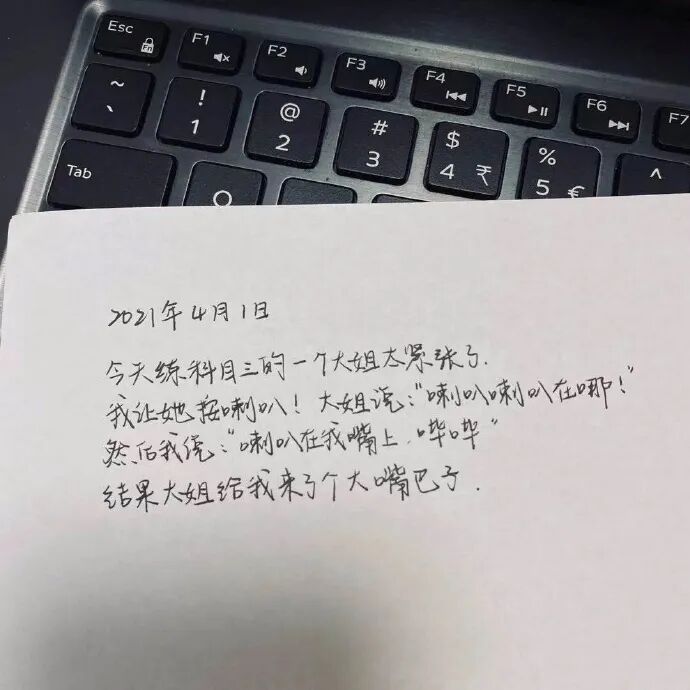 Esc Fn F1 F2 F3 F4 F5 F6 F7
~ ` ! 1 @ 2 # 3 $ 4 ₹ % 5 € ^
Tab Q
2021年4月1日
今天练科目三的一个大姐太紧张了.
我让她按喇叭！大姐说："喇叭喇叭在哪！"
然后我说："喇叭在我嘴上.哔哔"
结果大姐给我来了个大嘴巴子.